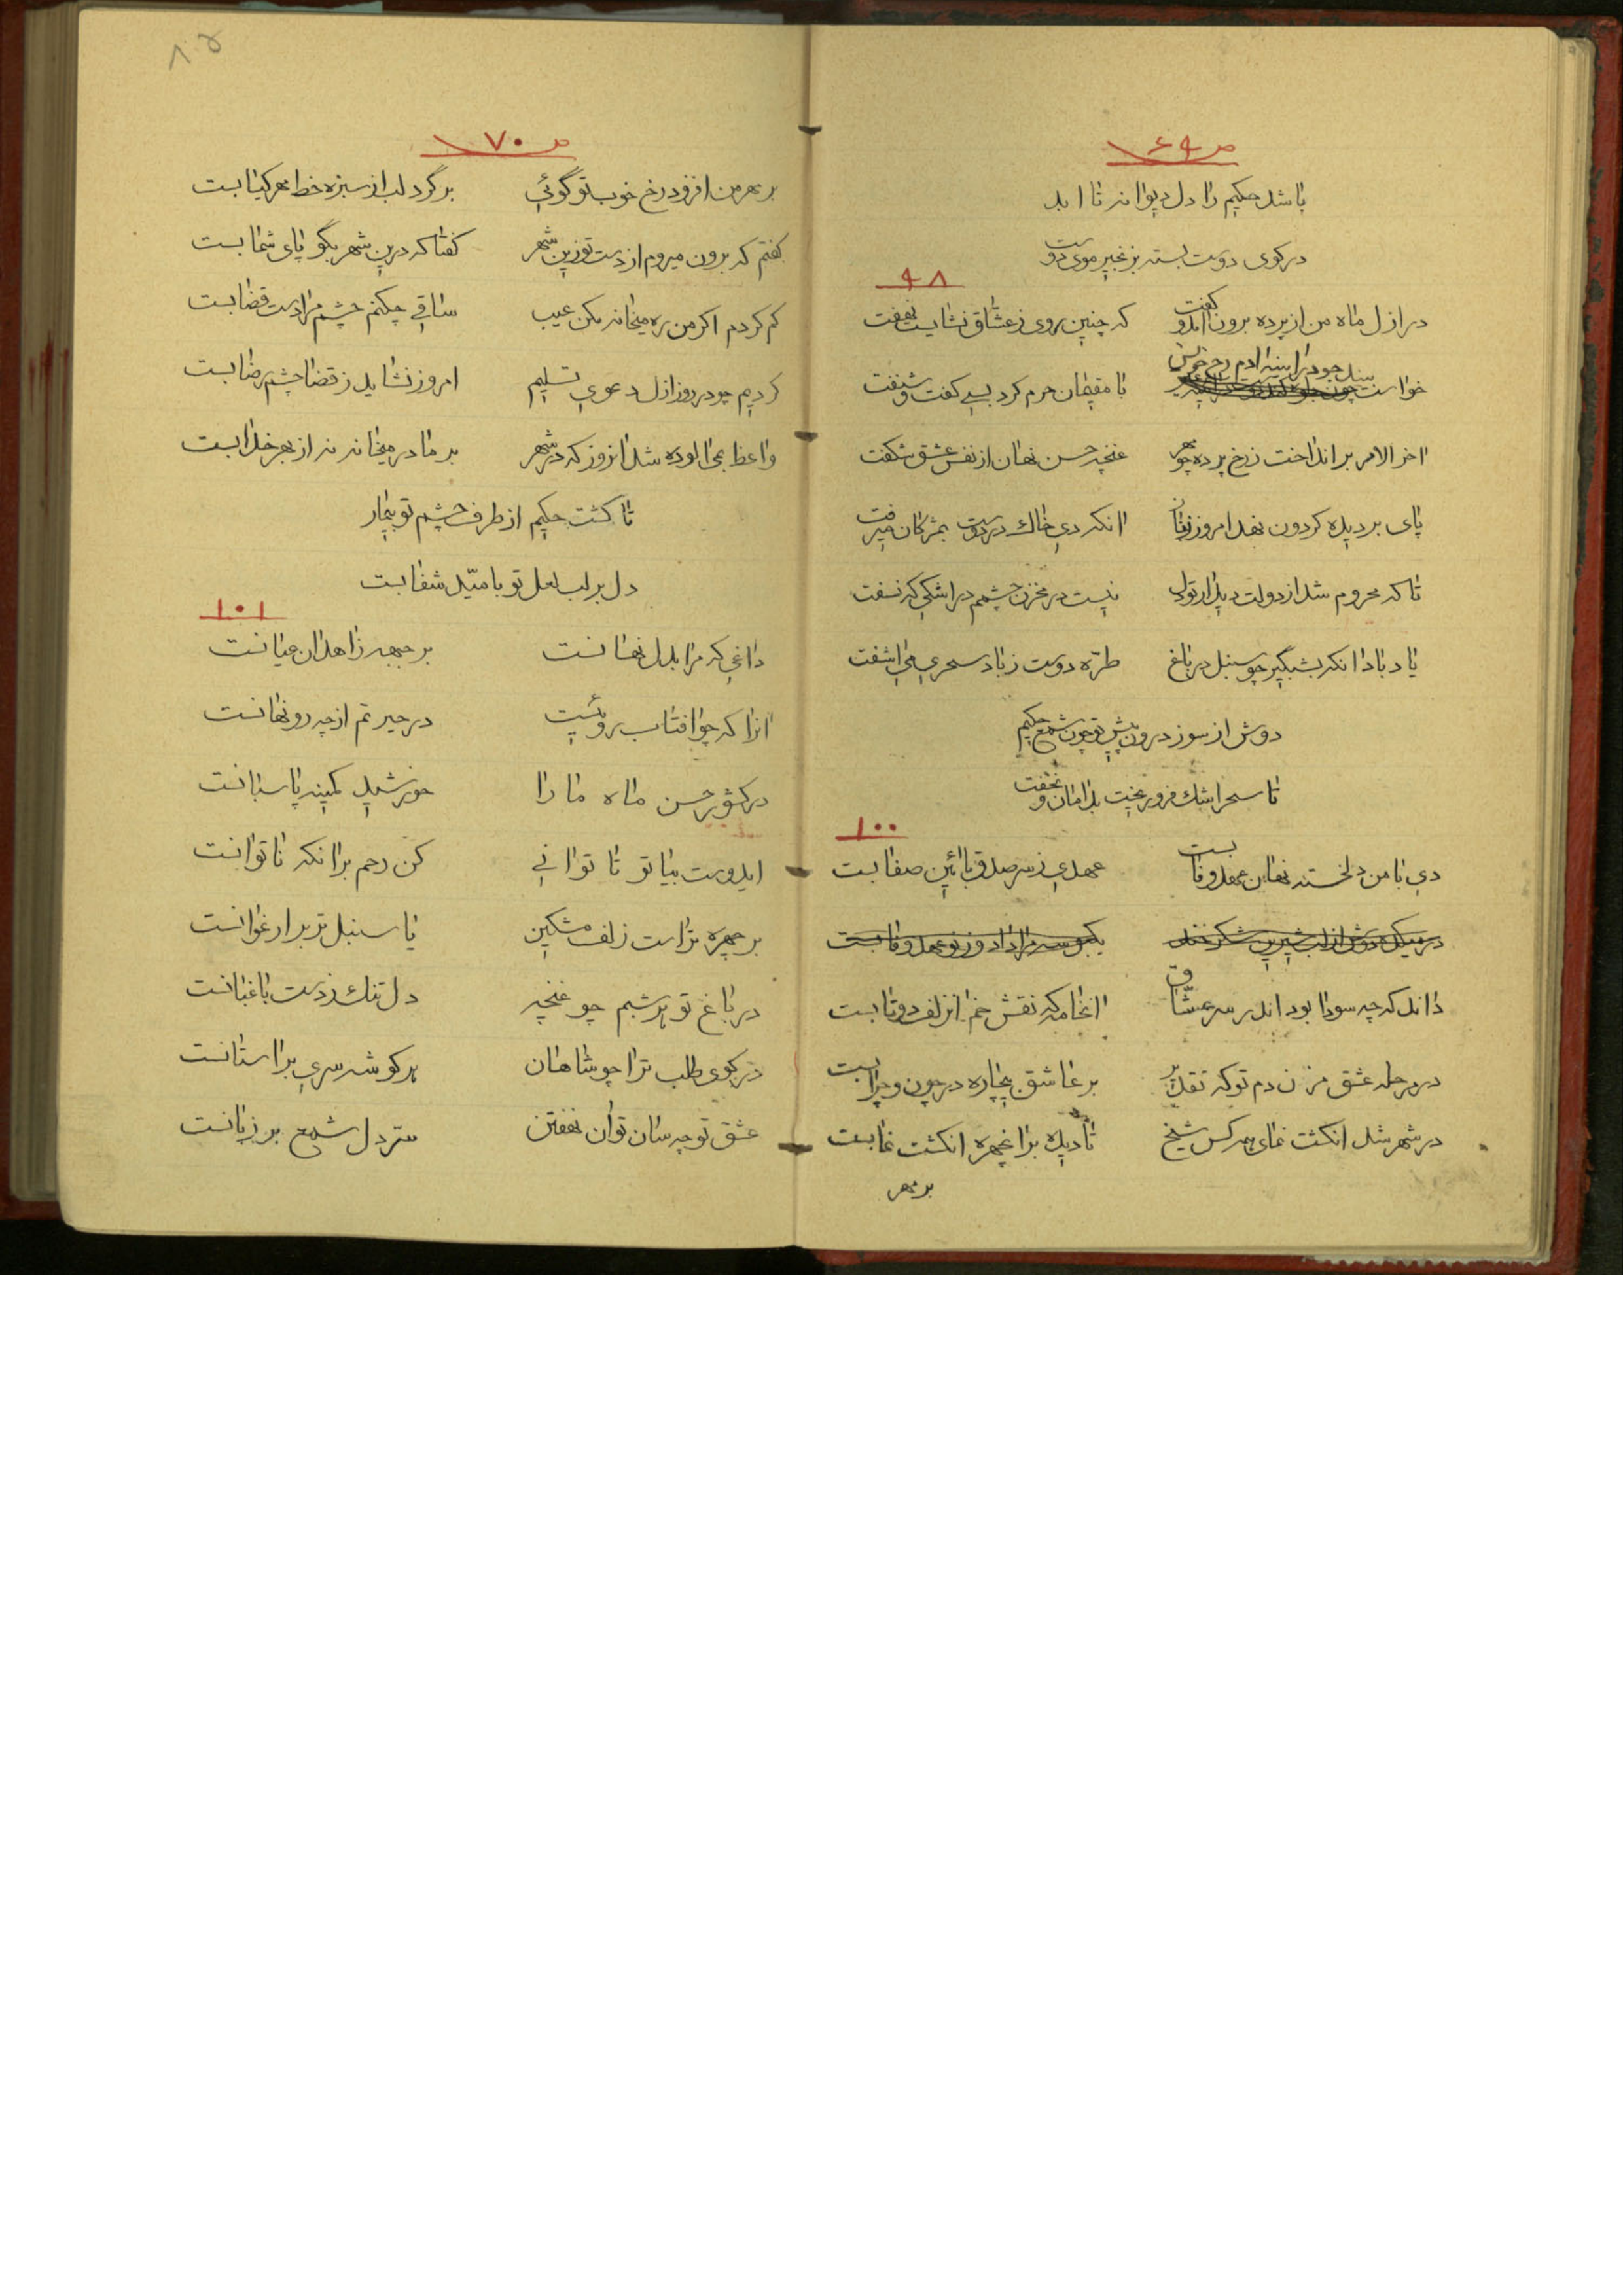 ص ۶۹
باشد حکیم را دل دیوانه تا ابد
در کوی دوست بسته بزنجیر موی دوست
۹۸
در ازل ماه من از پرده برون آمد و گفت که چنین روی ز عشاق نشایست نهفت
بیند چو در آیینه آدم رخ خویش
خواست با مقیمان حرم کرد بسی گفت و شنفت
اخر الامر بر انداخت ز رخ پرده چو مهر غنچه حسن نهان از نفس عشق شکفت
پای بر دیده کردون نهد امروز انکه دی خاک در دوست بمژکان میرفت
تا که محروم شد از دولت دیدار تو نیست در مخزن چشمم در اشکی که نسفت
یاد باد انکه بشبگیر چو سنبل در باغ طره دوست ز باد سحری می اشفت
دوش از سوز درون پیش تو چون شمع حکیم
تا سحر اشک فرو ریخت بدامان و نخفت
۱۰۰
دی با من دلخسته نهان عهد وفا بست عهدی ز سر صدق بائین صفا بست
در میکده دوش از لب شیرین شکر خند یکبوسه مرا داد و ز نو عهد وفا بست
داند که چه سودا بود اندر سر عشاق انخامه که نقش خم انزلف دوتا بست
در مرحله عشق مزن دم تو که تقدیر بر عاشق بیچاره در چون و چرا بست
در شهر شد انکشت نمای همه کس شیخ تا دیده بر انچهره انکشت نما بست
بر مهر
۸۵
ص ۷۰
بر مهر من افزود رخ خوب تو گوئی بر گرد لب از سبزه خط مهر کیا بست
کفتم که برون میروم از دست تو زین شهر کفتا که درین شهر بگو پای شما بست
کم کردم اکر من ره میخانه مکن عیب ساقی چکنم چشم مرا دست قضا بست
کردیم چو در روز ازل دعوی تسلیم امروز نشاید ز قضا چشم رضا بست
واعظ بمی الوده شد انروز که در شهر بر ما در میخانه نه از بهر خدا بست
تا کشت حکیم از طرف چشم تو بیمار
دل بر لب لعل تو بامید شفا بست
۱۰۱
داغی که مرا بدل نهانست بر جبهه زاهدان عیانست
انرا که چو افتاب روئیست در حیرتم از چه رو نهانست
در کشور حسن ماه ما را خورشید کمینه پاسبانست
ایدوست بیا تو تا توانی کن رحم بر انکه ناتوانست
بر چهره تراست زلف مشکین یا سنبل تر بر ارغوانست
در باغ تو هر شبم چو غنچه دل تنک ز دست باغبانست
در کوی طلب ترا چو شاهان هر کوشه سری بر استانست
عشق تو چه سان توان نهفتن سر دل شمع بر زبانست